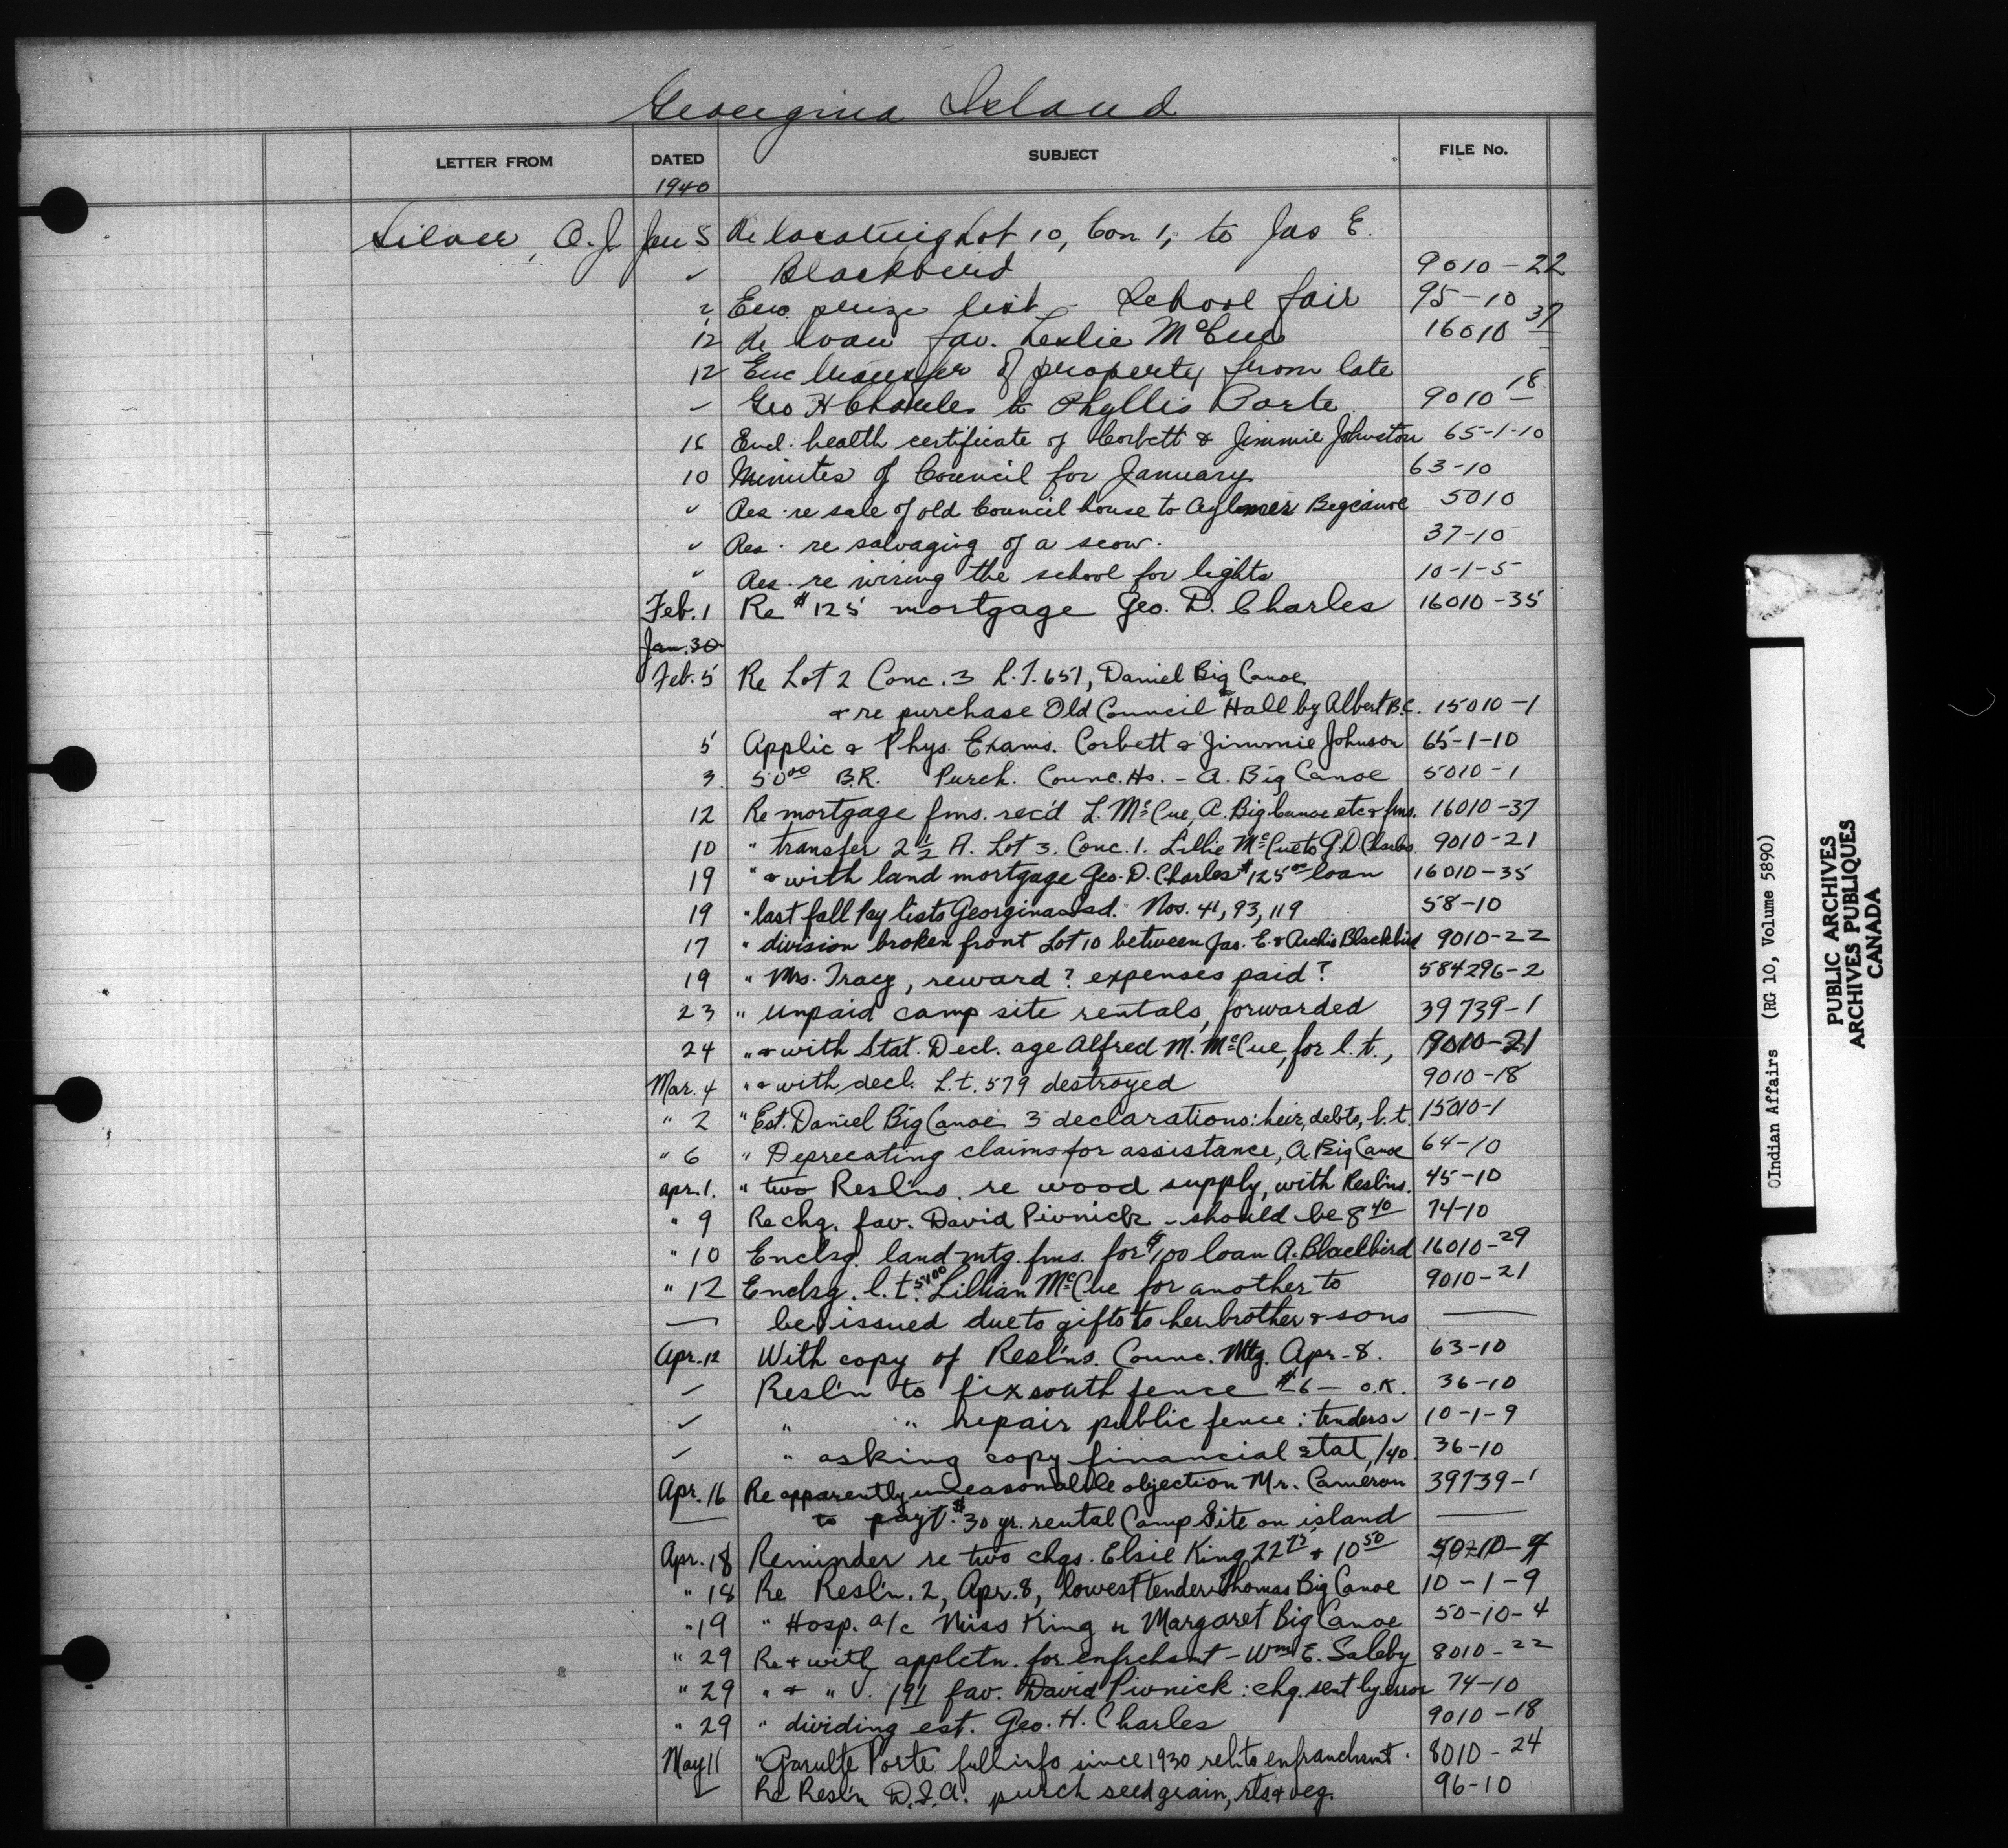 Georgina Island
LETTER FROM DATED SUBJECT FILE No.
1940
Silver, O. J. Jan 5 Re locating Lot 10, Con. 1, to Jas E.
✓ Blackbird 9010-22
Enc. prize list - School fair 95-10
12 Re loan fav. Leslie McCue 16010 37
12 Enc transfer of property from late
Geo H Charles to Phyllis Porte 9010 18
15 Encl. health certificate of Corbett & Jimmie Johnston 65-1-10
10 Minutes of Council for January 63-10
" Res. re sale of old Council house to Aylmer Bigcanoe 5010
" Res. re salvaging of a scow. 37-10
" Res. re wiring the school for lights 10-1-5
Feb. 1 Re $125 mortgage Geo. D. Charles 16010-35
Jan. 30
Feb. 5 Re Lot 2 Conc. 3 L.T. 651, Daniel Big Canoe
& re purchase Old Council Hall by Albert B.C. 15010-1
5 Applic & Phys. Exams. Corbett & Jimmie Johnson 65-1-10
3. 50⁰⁰ B.R. Purch. Counc. Hs. - A. Big Canoe 5010-1
12 Re mortgage fms. rec'd L. McCue, A. Big Canoe etc & fms. 16010-37
10 " transfer 2½ A. Lot 3. Conc. 1. Lillie McCue to G.D. Charles 9010-21
19 " & with land mortgage Geo. D. Charles $125⁰⁰ loan 16010-35
19 " last fall Pay lists Georgina Isd. Nos. 41, 93, 119 58-10
17 " division broken front Lot 10 between Jas. E. & Archie Blackbird 9010-22
19 " Mrs. Tracy, reward? expenses paid? 584296-2
23 " unpaid camp site rentals, forwarded 39739-1
24 " & with Stat. Decl. age Alfred M. McCue, for l.t., 9010-21
Mar. 4 " & with decl. L.t. 579 destroyed 9010-18
" 2 " Est. Daniel Big Canoe 3 declarations: heir, debts, l.t. 15010-1
" 6 " Deprecating claims for assistance, A. Big Canoe 64-10
Apr. 1. " two Resl'ns. re wood supply, with Reslns. 45-10
" 9 Re chq. fav. David Pivnick - should be 8⁴⁰ 74-10
" 10 Enclsg. land mtg. fms. for $100 loan A. Blackbird 16010-29
" 12 Enclsg. l.t. Lillian McCue for another to 9010-21
— be issued due to gifts to her brother & sons —
Apr. 12 With copy of Resl'ns. Counc. Mtg. Apr. 8. 63-10
✓ Resl'n to fix south fence $6— O.K. 36-10
✓ " " repair public fence: tenders 10-1-9
✓ " asking copy financial stat, /40. 36-10
Apr. 16 Re apparently unreasonable objection Mr. Cameron 39739-1
— to pay't. $30 yr. rental Camp Site on island —
Apr. 18 Reminder re two chqs. Elsie King 22⁷⁵ & 10⁵⁰ 50-10-4
" 18 Re Resl'n. 2, Apr. 8, lowest tender Thomas Big Canoe 10-1-9
" 19 " Hosp. a/c Miss King re Margaret Big Canoe 50-10-4
" 29 Re & with applctn. for enfrchsmt - Wm E. Saleby 8010-22
" 29 " & " V. 191 fav. David Pivnick: chq. sent by error 74-10
" 29 " dividing est. Geo. H. Charles 9010-18
May 11 " Porte full info since 1930 rel. to enfranchsmt. 8010-24
✓ Re Resl'n D.I.A. purch seed grain, rts & veg. 96-10
(Indian Affairs (RG 10, Volume 5890)
PUBLIC ARCHIVES
ARCHIVES PUBLIQUES
CANADA